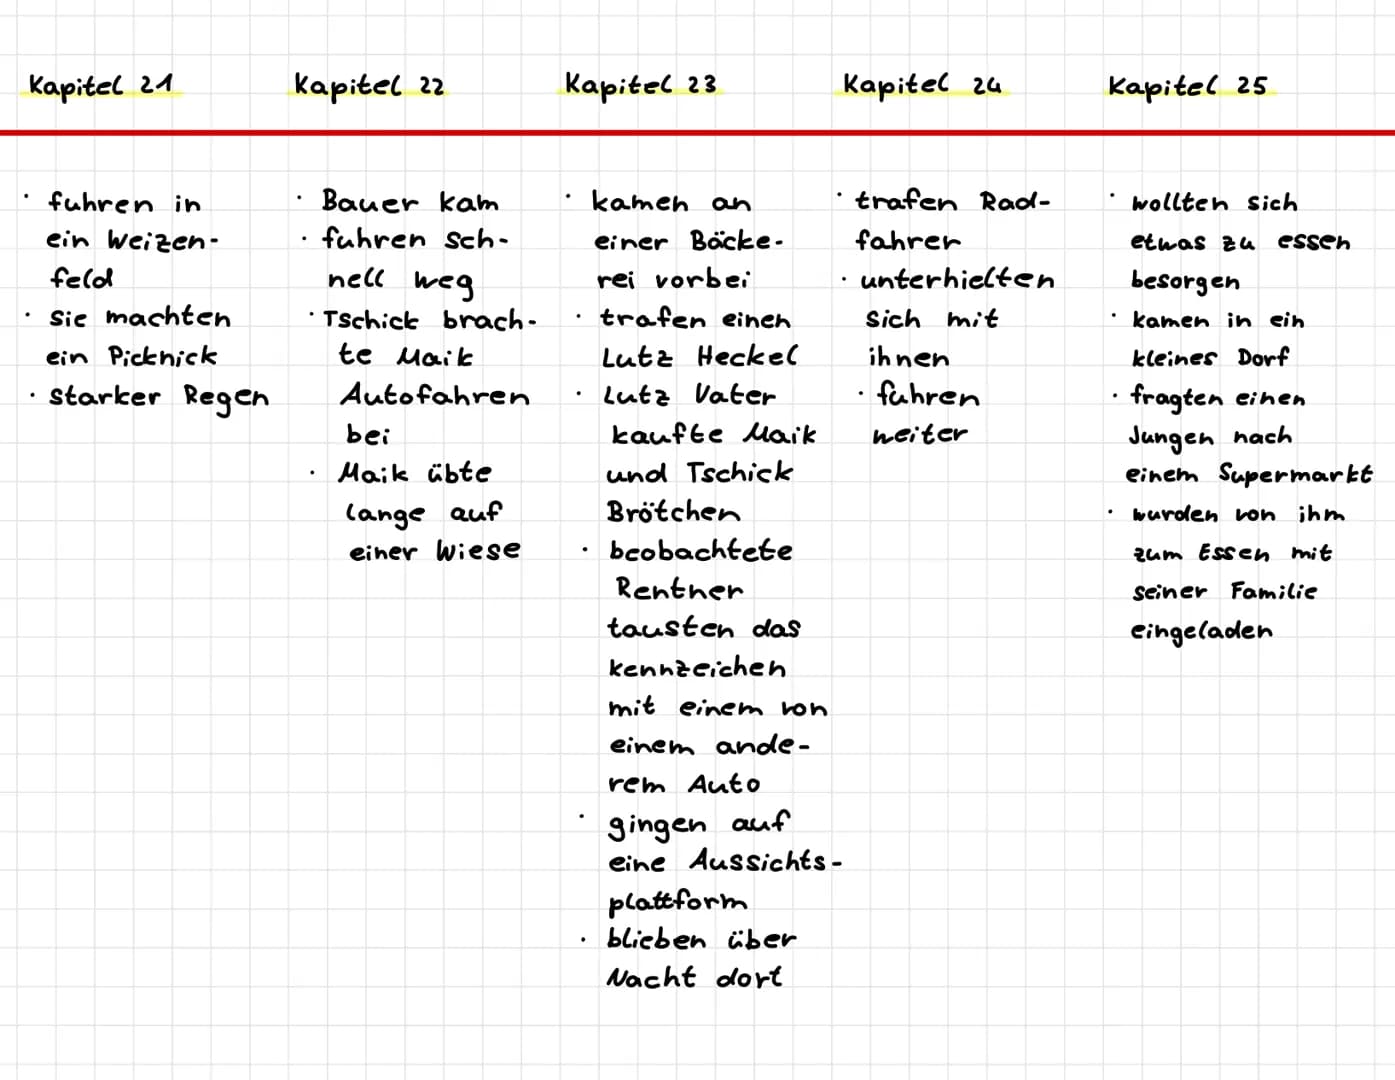 Kapitel 21
Kapitel 22
Kapitel 23
Kapitel 24
Kapitel 25
· fuhren in
ein Weizen-
feld
· sie machten
ein Picknick
· starker Regen
· Bauer kam
· fuhren sch-
nell weg
· Tschick brach-
te Maik
Autofahren
bei
· Maik übte
lange auf
einer Wiese
· kamen an
einer Bäcke-
rei vorbei
· trafen einen
Lutz Heckel
· Lutz Vater
kaufte Maik
und Tschick
Brötchen
· beobachtete
Rentner
tausten das
kennzeichen
mit einem von
einem ande-
rem Auto
· gingen auf
eine Aussichts-
plattform
· blieben über
Nacht dort
· trafen Rad-
fahrer
· unterhielten
sich mit
ihnen
· fuhren
weiter
· wollten sich
etwas zu essen
besorgen
· kamen in ein
kleines Dorf
· fragten einen
Jungen nach
einem Supermarkt
· wurden von ihm
zum Essen mit
seiner Familie
eingeladen